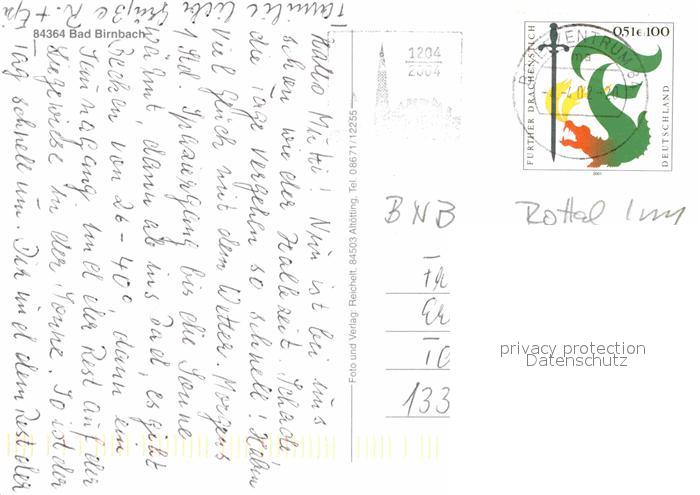 84364 Bad Birnbach
Hallo Mutti! Nun ist bei uns
schon wieder Halbzeit. Schade
die Tage vergehen so schnell! Haben
viel Glück mit dem Wetter. Morgens
1 Std. Spaziergang bis die Sonne
wärmt, dann ab ins Bad, es gibt
Becken von 26-40°, dann ein
Saunagang und der Rest auf der
Liegewiese in der Sonne. So ist der
Tag schnell um. Dir und dem Rest der
Familie liebe Grüße R. +
Foto und Verlag: Reichelt, 84503 Altötting, Tel. 08671/12255
1204
2004
BRIEFZENTRUM 84
0,51€ 100
FURTHER DRACHENSTICH
DEUTSCHLAND
2001
BNB
Rottal Inn
133
privacy protection
Datenschutz